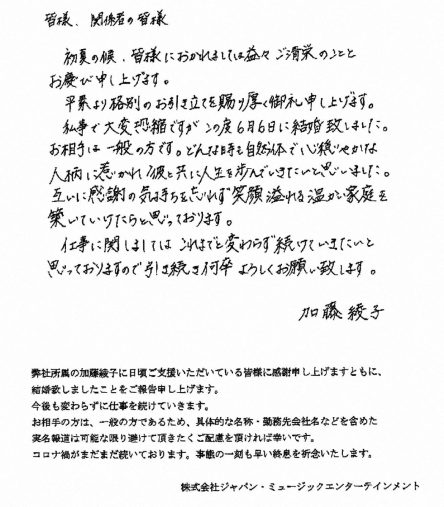 皆様、関係者の皆様
初夏の候、皆様におかれましては益々ご清栄のことと
お慶び申し上げます。
平素より格別のお引き立てを賜り厚く御礼申し上げます。
私事で大変恐縮ですがこの度6月6日に結婚致しました。
お相手は一般の方です。どんな時も自然体で心穏やかな
人柄に惹かれ彼と共に人生を歩んでいきたいと思いました。
互いに感謝の気持ちを忘れず笑顔溢れる温かい家庭を
築いていけたらと思っております。
仕事に関しましてはこれまでと変わらず続けていきたいと
思っておりますので引き続き何卒よろしくお願い致します。
加藤綾子
弊社所属の加藤綾子に日頃ご支援いただいている皆様に感謝申し上げますともに、
結婚致しましたことをご報告申し上げます。
今後も変わらずに仕事を続けていきます。
お相手の方は、一般の方であるため、具体的な名称・勤務先会社名などを含めた
実名報道は可能な限り避けて頂きたくご配慮を頂ければ幸いです。
コロナ禍がまだまだ続いております。事態の一刻も早い終息を祈念いたします。
株式会社ジャパン・ミュージックエンターテインメント